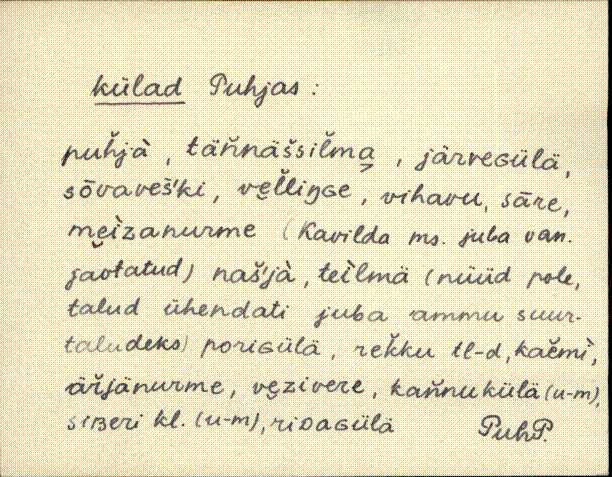 külad Puhjas :
puh̆jà, tän̆näšsil̆ma̮, järveɢülä,
sõvaveš'ki, ve̮l̆liŋɢe, vihavu, sāre,
me̮ìzanurme (Kavilda ms. juba van.
jaotatud) naš'jà, teìlmä (nüüd pole,
talud ühendati juba ammu suur-
taludeks) poriɢülä, rek̆ku tl-d, kaĕmì,
är̆jänurme, ve̮zivere, kan̆nukülä (u-m),
siʙeri kl. (u-m), riᴅaɢülä PuhP.